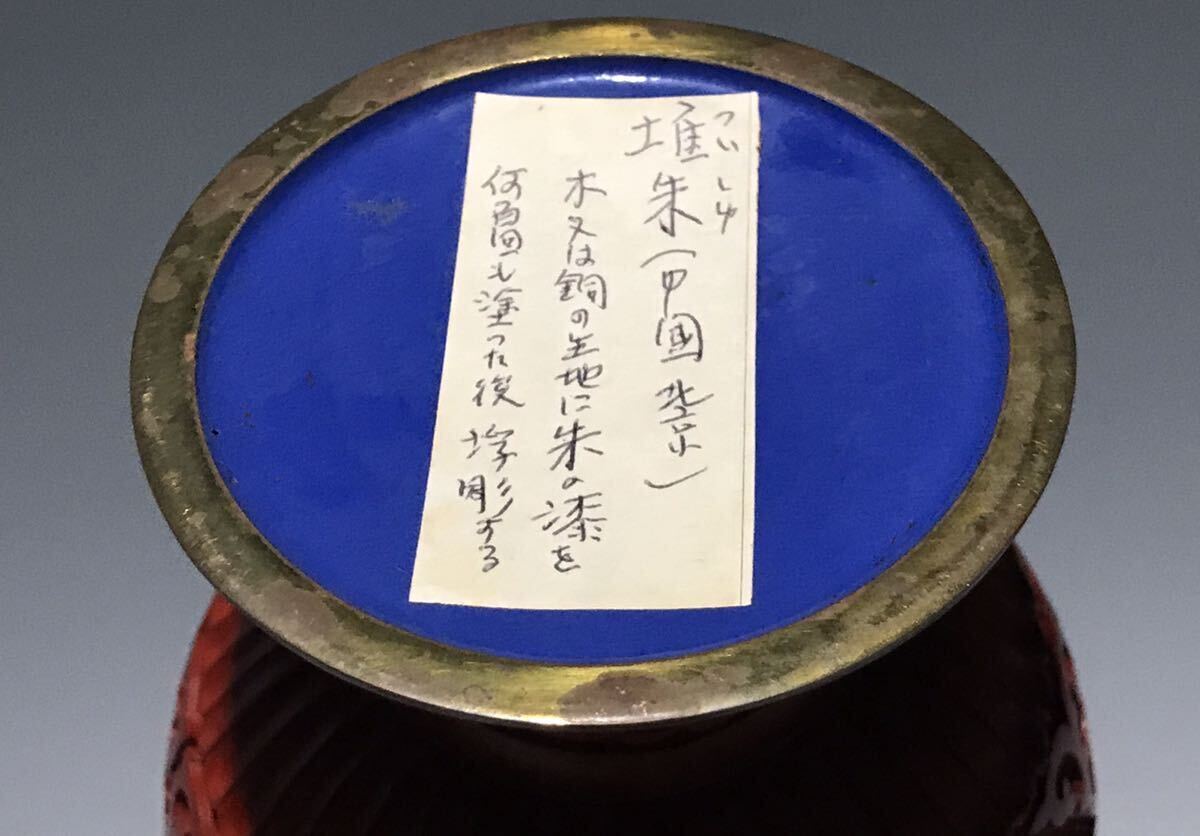 ついしゅ
堆朱(中国 北京)
木又は銅の生地に朱の漆を
何百回も塗った後 浮彫する